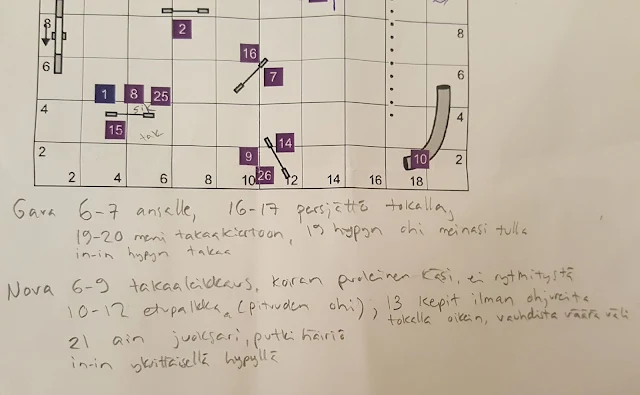 8
2
8
6
16
7
6
1
8
25
4
15
4
2
9
14
10
2
26
2
4
6
8
10
12
14
16
18
Gara 6-7 ansalle, 16-17 persjättö tokalla,
19-20 meni takaakiertoon, 19 hypyn ohi meinasi tulla
in-in hypyn takaa
Nova 6-9 takaaleikkaus, koiran puoleinen käsi, ei rytmitystä
10-12 etupalkka (pituuden ohi), 13 kepit ilman ohjureita
tokalla oikein, vauhdista väärä väli
21 ain juoksari, putkihäiriö
in-in yksittäisellä hypyllä